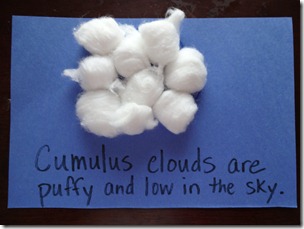 Cumulus clouds are
puffy and low in the sky.